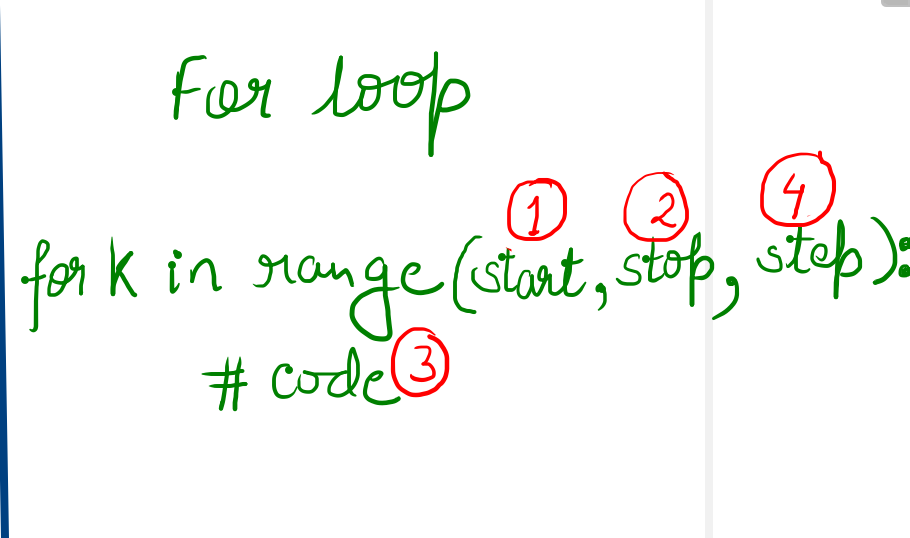 For loop
1 2 4
for k in range(start, stop, step):
# code 3